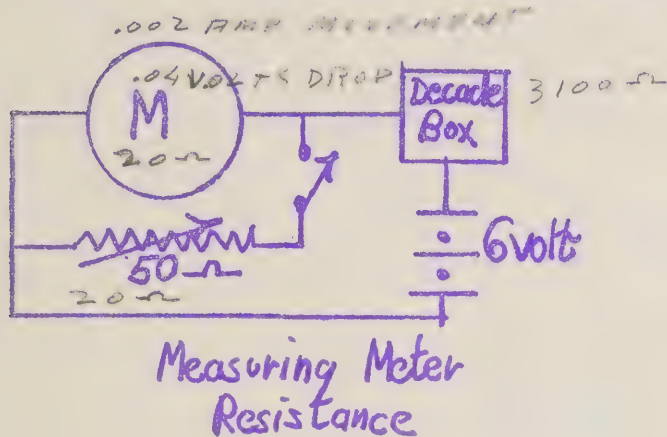 .002 AMP MOVEMENT
.04 VOLTS DROP
M
20 Ω
Decade
Box
3100 Ω
6 volt
50 Ω
20 Ω
Measuring Meter
Resistance